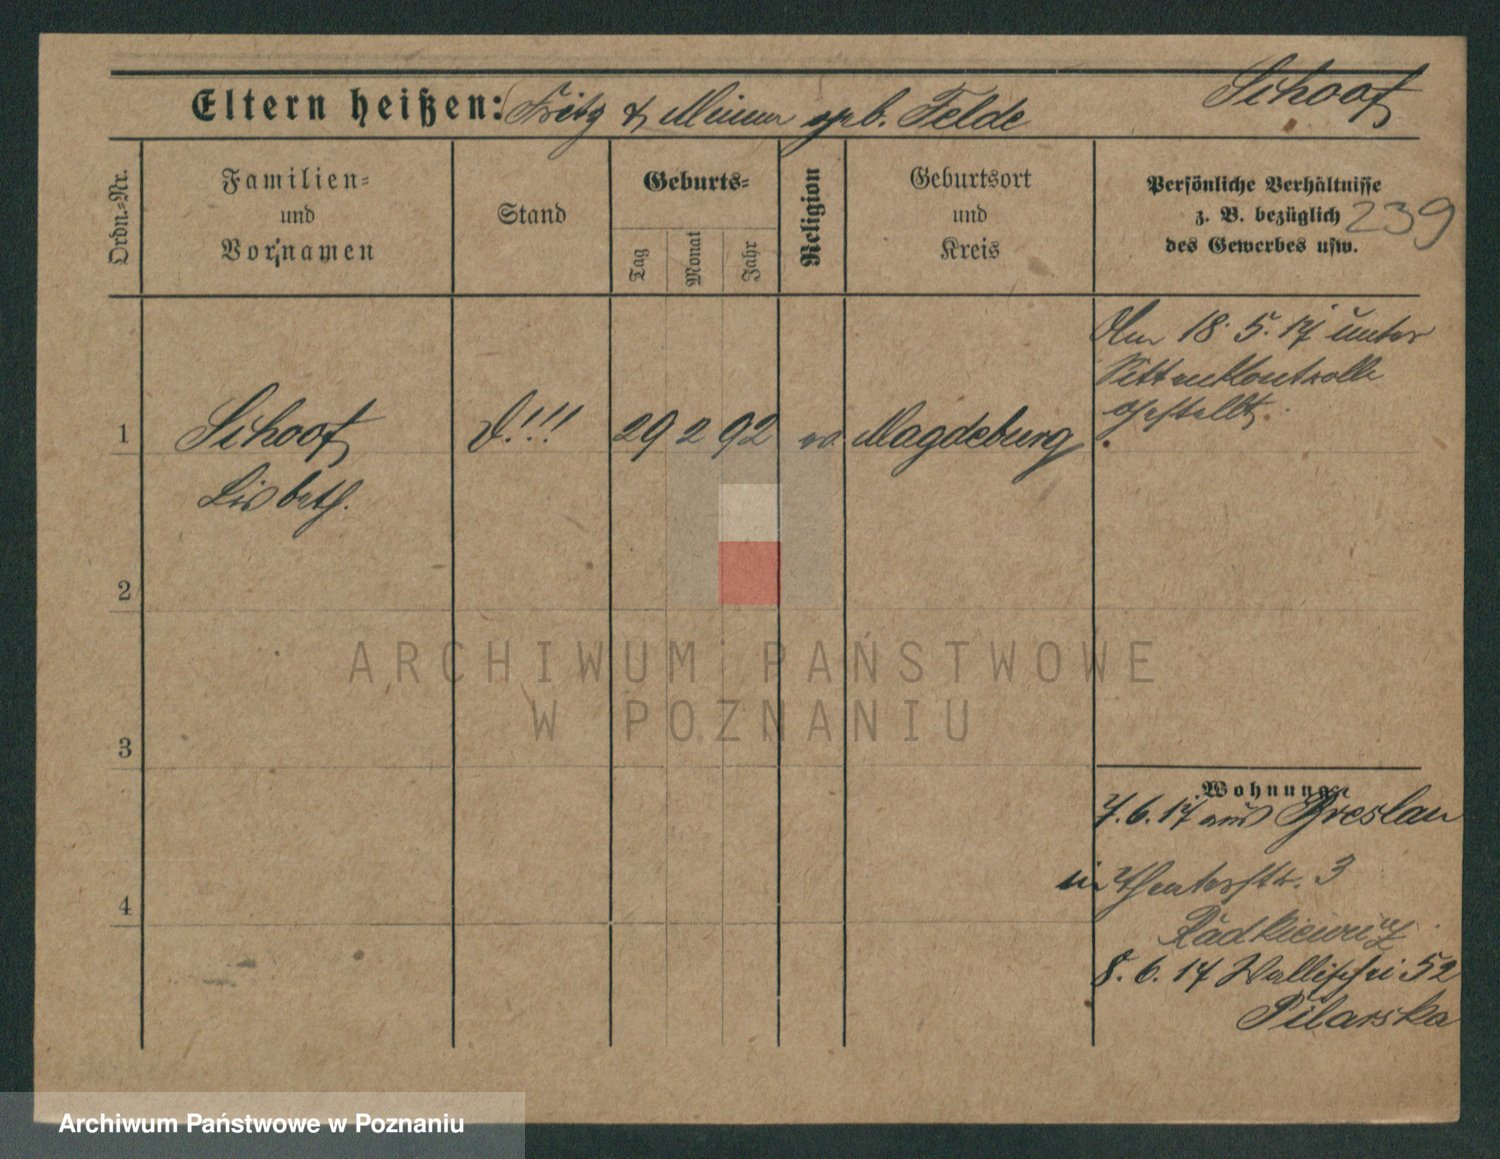 Schoof
Eltern heißen: Fritz & Minna geb. Felde
Ordn.-Nr.
Familien-
und
Vornamen
Stand
Geburts-
Tag
Monat
Jahr
Religion
Geburtsort
und
Kreis
Persönliche Verhältnisse
z. B. bezüglich
des Gewerbes usw.
239
1
Schoof
Lisbeth.
!!!
29 2 92
ev.
Magdeburg
Am 18. 5. 17 unter
Sittenkontrolle
gestellt.
2
3
4
Wohnung:
7. 6. 17 aus Breslau
in Theaterstr. 3
Radkiewicz
8. 6. 17 Wallischei 52
Pilarska
ARCHIWUM PAŃSTWOWE
W POZNANIU
Archiwum Państwowe w Poznaniu